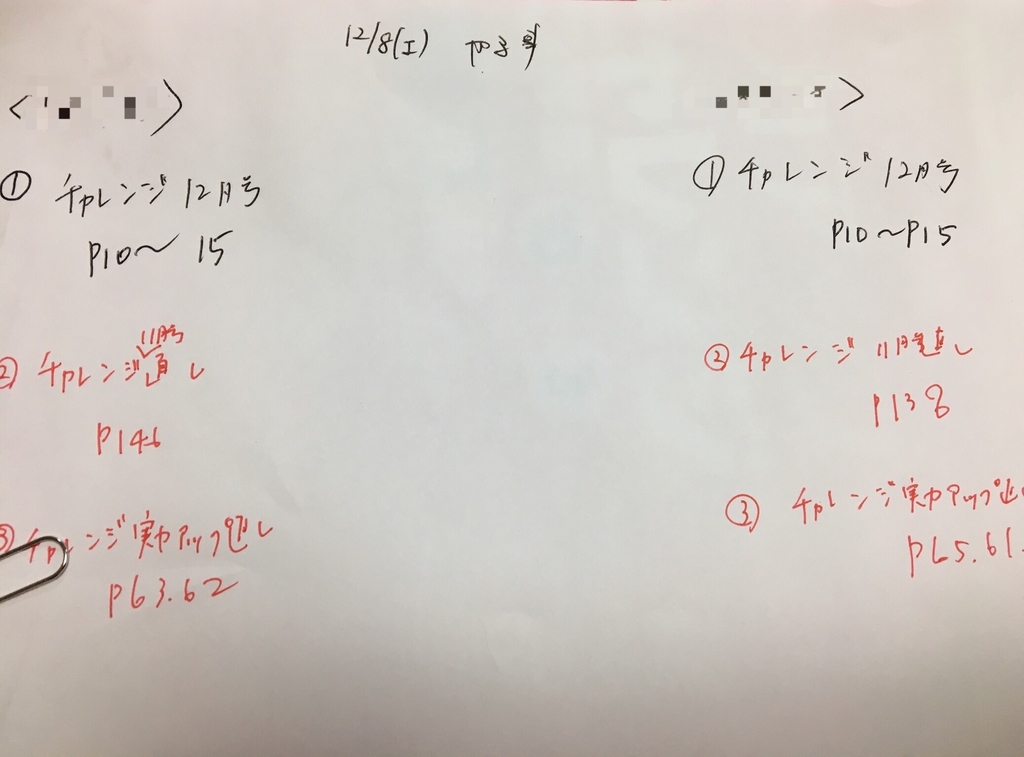 12/8(土) やる事
① チャレンジ 12月号
P10〜 15
② チャレンジ 11月号 直し
P146
③ チャレンジ実力アップ直し
P63.62
① チャレンジ 12月号
P10〜P15
② チャレンジ 11月号直し
P138
③ チャレンジ実力アップ直し
P65.61.